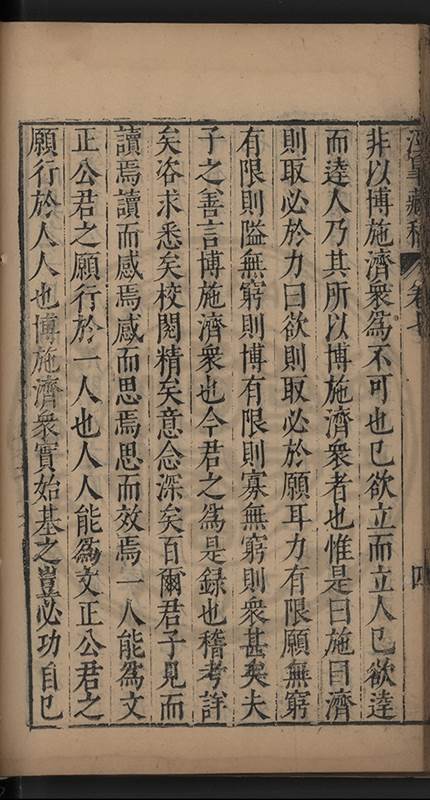 涇臯藏稿 卷七 四
非以博施濟衆爲不可也己欲立而立人己欲達
而達人乃其所以博施濟衆者也惟是曰施曰濟
則取必於力曰欲則取必於願耳力有限願無窮
有限則隘無窮則博有限則寡無窮則衆甚矣夫
子之善言博施濟衆也今君之爲是録也稽考詳
矣咨求悉矣校閱精矣意念深矣百爾君子見而
讀焉讀而感焉感而思焉思而效焉一人能爲文
正公君之願行於一人也人人能爲文正公君之
願行於人人也博施濟衆實始基之豈必功自己